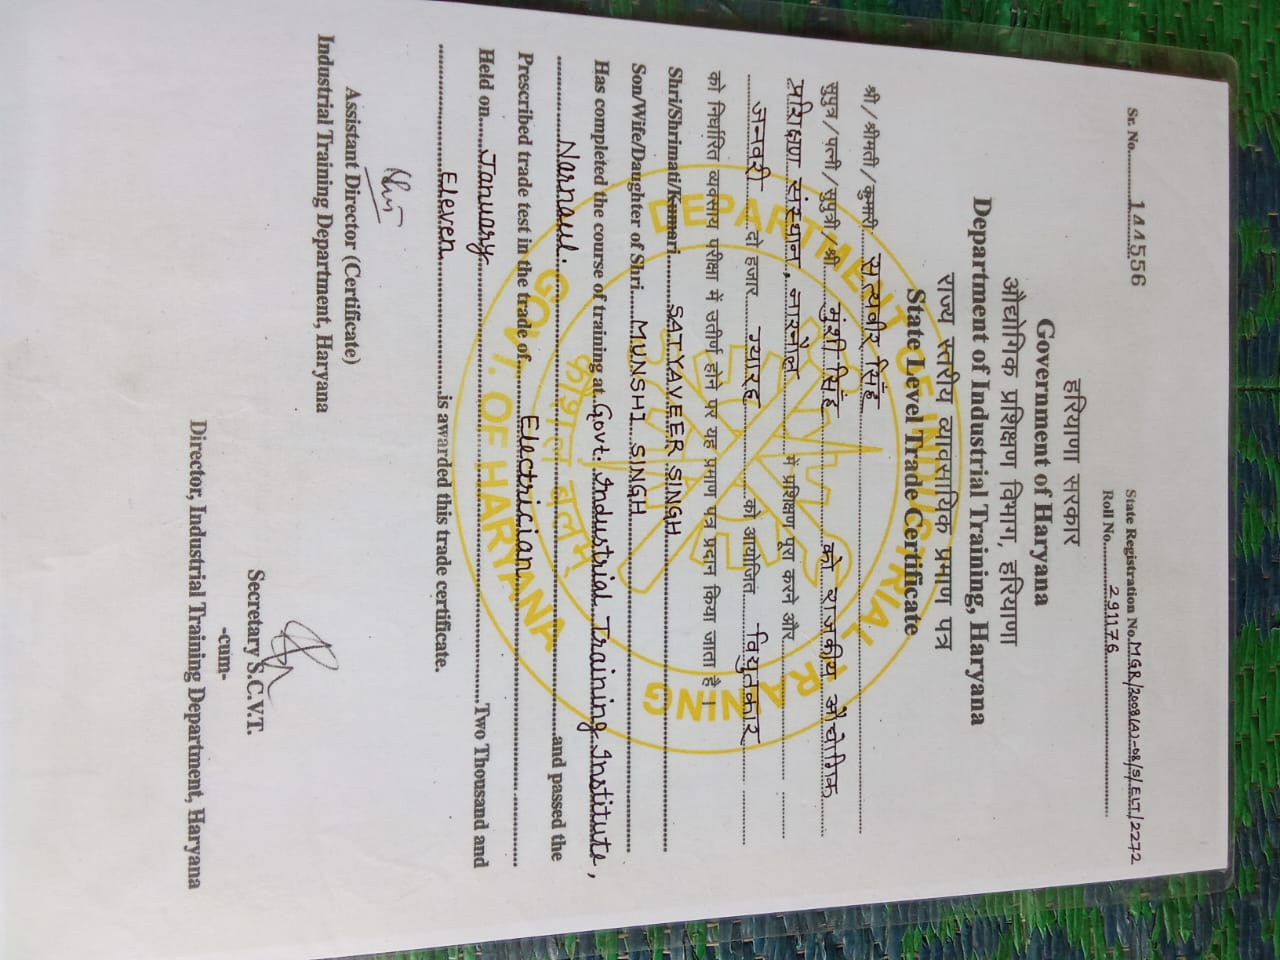 Sr. No. 144556
State Registration No. MGR/2008(A)-08/S/ELT/2272
Roll No. 291176
हरियाणा सरकार
Government of Haryana
औद्योगिक प्रशिक्षण विभाग, हरियाणा
Department of Industrial Training, Haryana
राज्य स्तरीय व्यावसायिक प्रमाण पत्र
State Level Trade Certificate
श्री/श्रीमती/कुमारी सत्यवीर सिंह
सुपुत्र/पत्नी/सुपुत्री/श्री मुंशी सिंह को राजकीय औद्योगिक
प्रशिक्षण संस्थान, नारनौल में प्रशिक्षण पूरा करने और
जनवरी दो हजार ग्यारह को आयोजित विद्युतकार
को निर्धारित व्यवसाय परीक्षा में उतीर्ण होने पर यह प्रमाण पत्र प्रदान किया जाता है।
Shri/Shrimati/Kumari SATYAVEER SINGH
Son/Wife/Daughter of Shri MUNSHI SINGH
Has completed the course of training at Govt. Industrial Training Institute,
Narnaul. and passed the
Prescribed trade test in the trade of Electrician
Held on January Two Thousand and
Eleven is awarded this trade certificate.
Assistant Director (Certificate)
Industrial Training Department, Haryana
Secretary S.C.V.T.
-cum-
Director, Industrial Training Department, Haryana
DEPARTMENT OF INDUSTRIAL TRAINING
GOVT. OF HARYANA
कौशल बलम